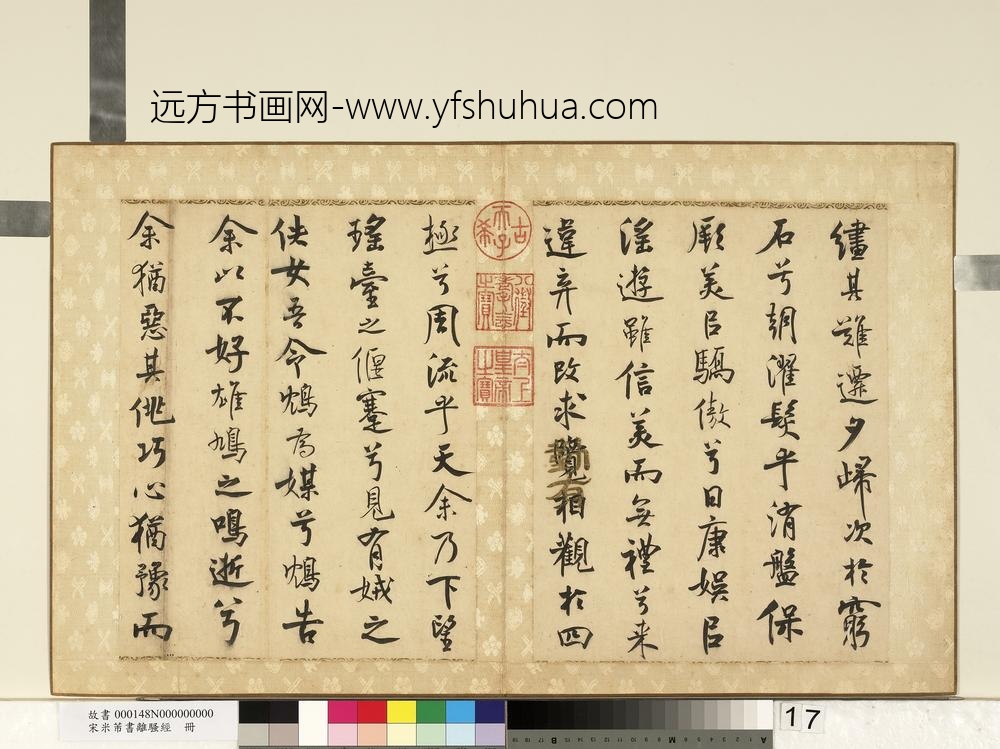 远方书画网-www.yfshuhua.com
繣其難遷夕歸次於窮
石兮朝濯髮乎洧盤保
厥美㠯驕傲兮日康娛㠯
淫遊雖信美而無禮兮来
違弃而改求覽相觀於四
極兮周流乎天余乃下望
瑤臺之偃蹇兮見有娀之
佚女吾令鴆為媒兮鴆告
余以不好雄鳩之鳴逝兮
余猶惡其佻巧心猶豫而
古希天子
八徵耄念之寶
太上皇帝之寶
故書 000148N000000000
宋米芾書離騷經 冊
17